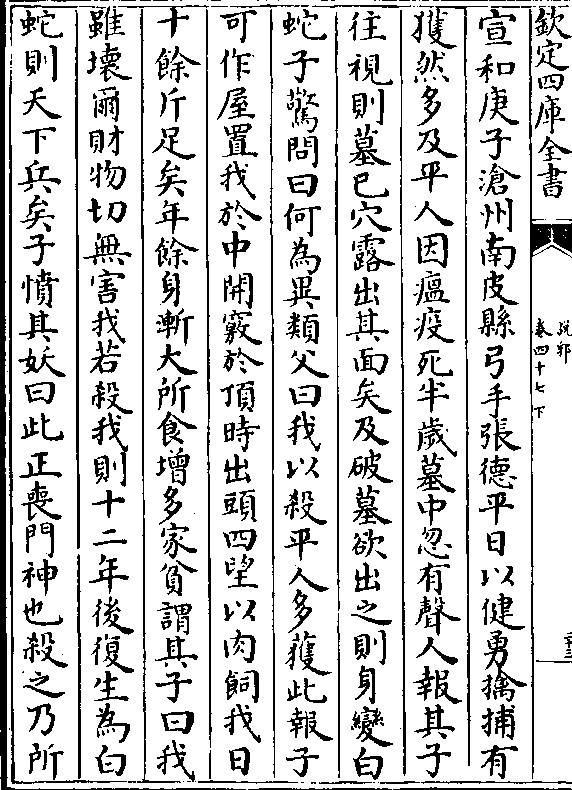 欽定四庫全書
說郛
卷四十七下
宣和庚子滄州南皮縣弓手張德平日以健勇擒捕有
獲然多及平人因瘟疫死半歲墓中忽有聲人報其子
往視則墓已穴露出其面矣及破墓欲出之則身變白
蛇子驚問曰何為異類父曰我以殺平人多獲此報子
可作屋置我於中開竅於頂時出頭四望以肉飼我日
十餘斤足矣年餘身漸大所食增多家貧謂其子曰我
雖壞爾財物切無害我若殺我則十二年後復生為白
蛇則天下兵矣子憤其妖曰此正喪門神也殺之乃所